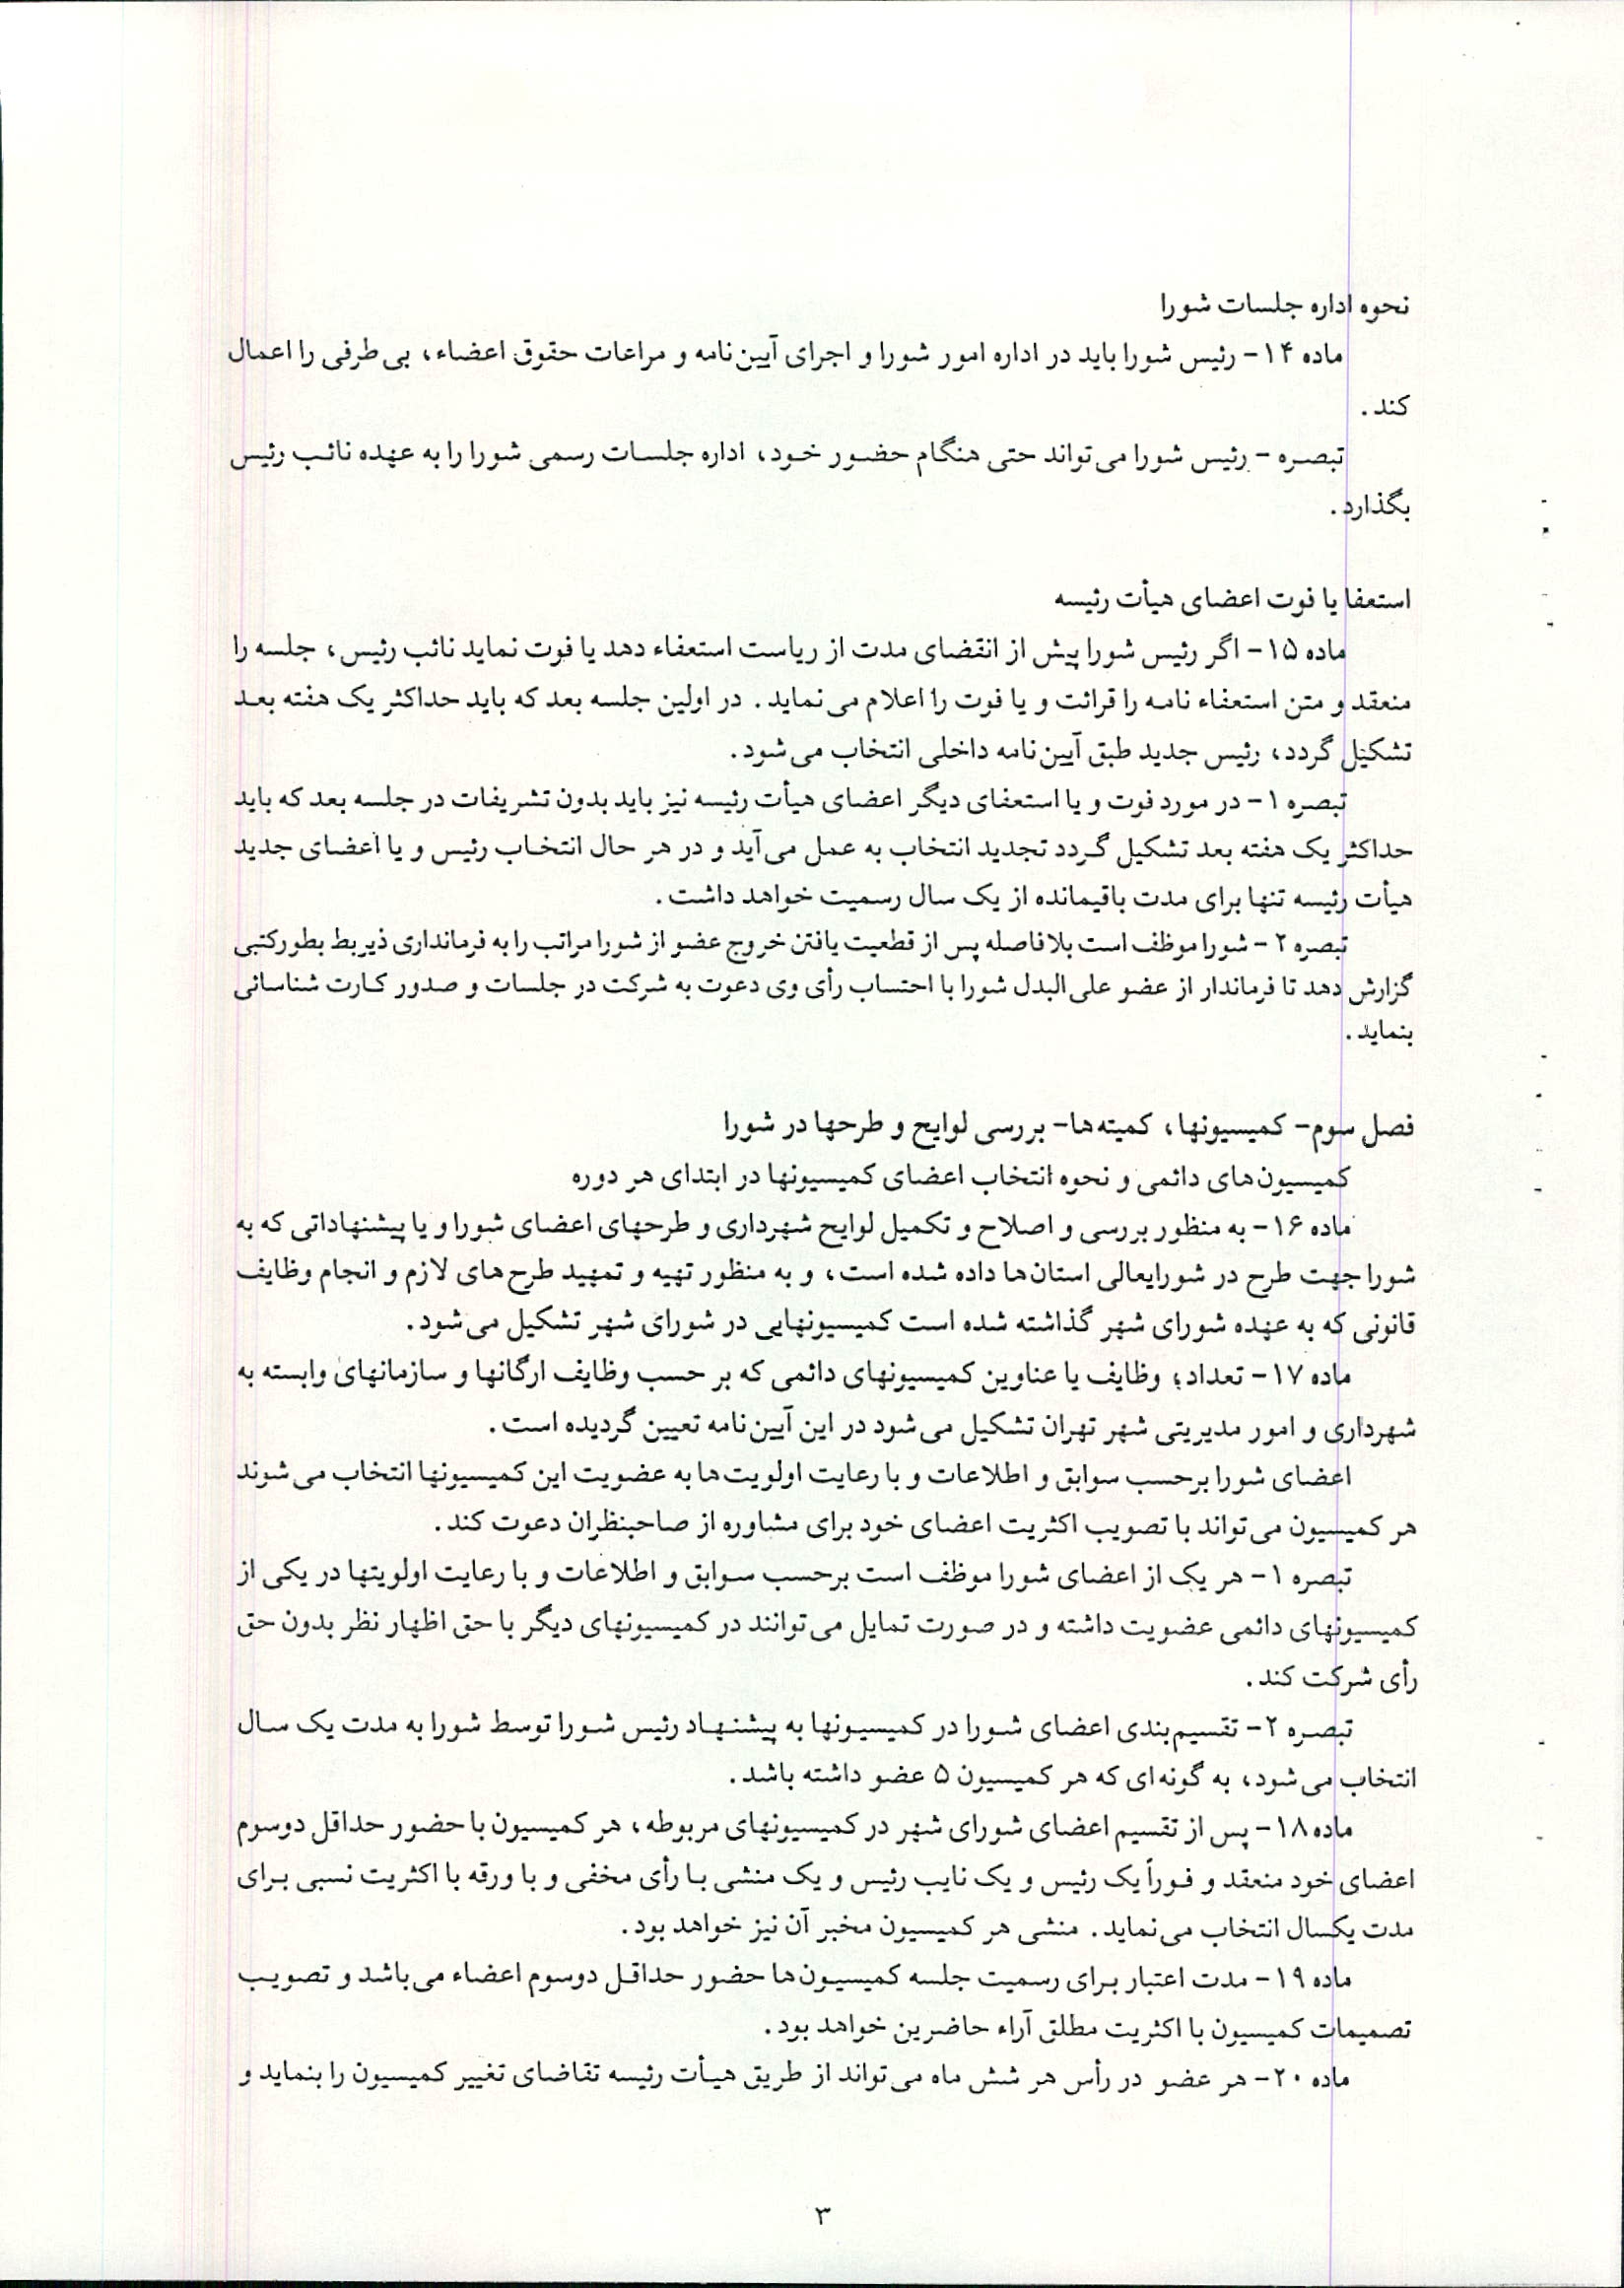 نحوه اداره جلسات شورا
ماده ۱۴- رئیس شورا باید در اداره امور شورا و اجرای آیین‌نامه و مراعات حقوق اعضاء، بی‌طرفی را اعمال
کند.
تبصره - رئیس شورا می‌تواند حتی هنگام حضور خود، اداره جلسات رسمی شورا را به عهده نائب رئیس
بگذارد.
استعفا یا فوت اعضای هیأت رئیسه
ماده ۱۵- اگر رئیس شورا پیش از انقضای مدت از ریاست استعفاء دهد یا فوت نماید نائب رئیس، جلسه را
منعقد و متن استعفاء نامه را قرائت و یا فوت را اعلام می‌نماید. در اولین جلسه بعد که باید حداکثر یک هفته بعد
تشکیل گردد، رئیس جدید طبق آیین‌نامه داخلی انتخاب می‌شود.
تبصره ۱- در مورد فوت و یا استعفای دیگر اعضای هیأت رئیسه نیز باید بدون تشریفات در جلسه بعد که باید
حداکثر یک هفته بعد تشکیل گردد تجدید انتخاب به عمل می‌آید و در هر حال انتخاب رئیس و یا اعضای جدید
هیأت رئیسه تنها برای مدت باقیمانده از یک سال رسمیت خواهد داشت.
تبصره ۲- شورا موظف است بلافاصله پس از قطعیت یافتن خروج عضو از شورا مراتب را به فرمانداری ذیربط بطورکتبی
گزارش دهد تا فرماندار از عضو علی‌البدل شورا با احتساب رأی وی دعوت به شرکت در جلسات و صدور کارت شناسائی
بنماید.
فصل سوم- کمیسیونها، کمیته‌ها- بررسی لوایح و طرحها در شورا
کمیسیون‌های دائمی و نحوه انتخاب اعضای کمیسیونها در ابتدای هر دوره
ماده ۱۶- به منظور بررسی و اصلاح و تکمیل لوایح شهرداری و طرحهای اعضای شورا و یا پیشنهاداتی که به
شورا جهت طرح در شورایعالی استان‌ها داده شده است، و به منظور تهیه و تمهید طرح‌های لازم و انجام وظایف
قانونی که به عهده شورای شهر گذاشته شده است کمیسیونهایی در شورای شهر تشکیل می‌شود.
ماده ۱۷- تعداد، وظایف یا عناوین کمیسیونهای دائمی که بر حسب وظایف ارگانها و سازمانهای وابسته به
شهرداری و امور مدیریتی شهر تهران تشکیل می‌شود در این آیین‌نامه تعیین گردیده است.
اعضای شورا برحسب سوابق و اطلاعات و با رعایت اولویت‌ها به عضویت این کمیسیونها انتخاب می‌شوند
هر کمیسیون می‌تواند با تصویب اکثریت اعضای خود برای مشاوره از صاحبنظران دعوت کند.
تبصره ۱- هر یک از اعضای شورا موظف است برحسب سوابق و اطلاعات و با رعایت اولویتها در یکی از
کمیسیونهای دائمی عضویت داشته و در صورت تمایل می‌توانند در کمیسیونهای دیگر با حق اظهار نظر بدون حق
رأی شرکت کند.
تبصره ۲- تقسیم‌بندی اعضای شورا در کمیسیونها به پیشنهاد رئیس شورا توسط شورا به مدت یک سال
انتخاب می‌شود، به گونه‌ای که هر کمیسیون ۵ عضو داشته باشد.
ماده ۱۸- پس از تقسیم اعضای شورای شهر در کمیسیونهای مربوطه، هر کمیسیون با حضور حداقل دوسوم
اعضای خود منعقد و فوراً یک رئیس و یک نایب رئیس و یک منشی با رأی مخفی و با ورقه با اکثریت نسبی برای
مدت یکسال انتخاب می‌نماید. منشی هر کمیسیون مخبر آن نیز خواهد بود.
ماده ۱۹- مدت اعتبار برای رسمیت جلسه کمیسیون‌ها حضور حداقل دوسوم اعضاء می‌باشد و تصویب
تصمیمات کمیسیون با اکثریت مطلق آراء حاضرین خواهد بود.
ماده ۲۰- هر عضو در رأس هر شش ماه می‌تواند از طریق هیأت رئیسه تقاضای تغییر کمیسیون را بنماید و
۳